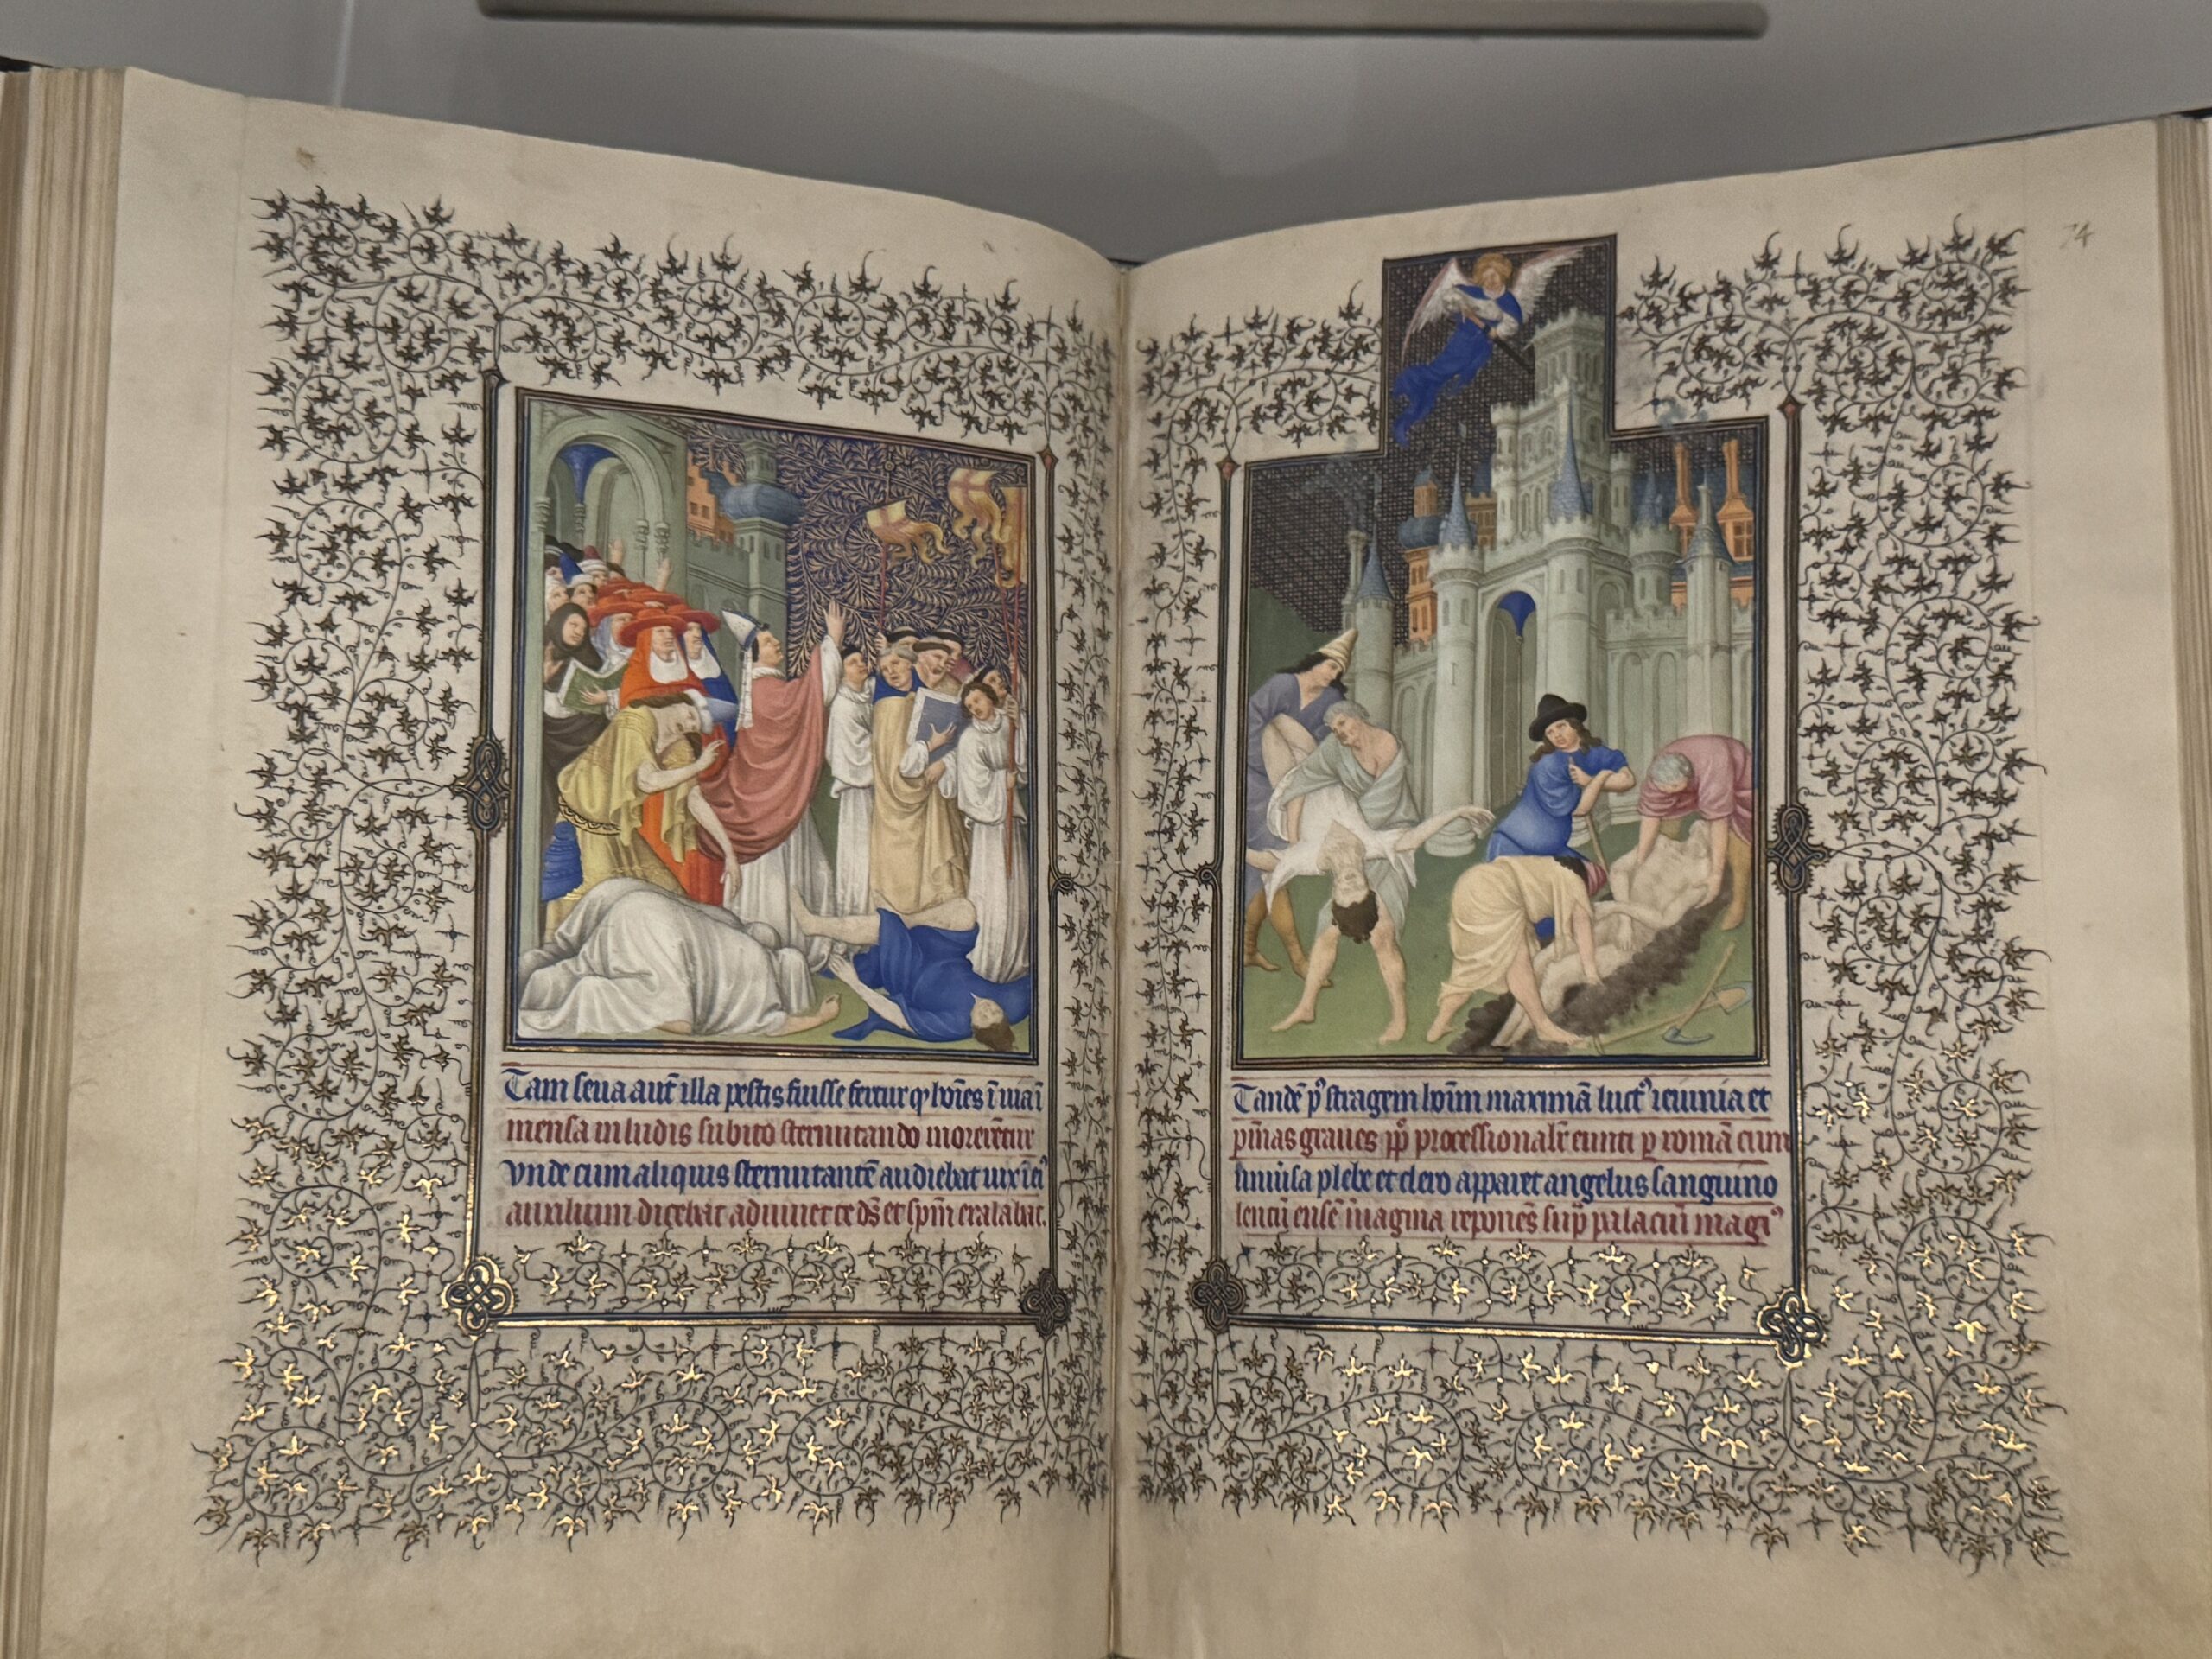 Tam seua aut̄ illa pestis fuisse fertur q̇ hoı̄es ı̄ uia ı̄
mensa ın ludis subito sternutando morerētur
vnde cum aliquis sternutantē audiebat
auxilium dicebat adiuuet te ds̄ et sp̄m exalabat.
74
Tandē p⁹ stragem hoı̄m maximā luct⁹ ieiunia et
graues pp̄ processionalr̄ eunti p romā cum
plebe et clero apparet angelus sanguino
lentū ensē ı̄ uagina reponēs sup palaciū magı⁹